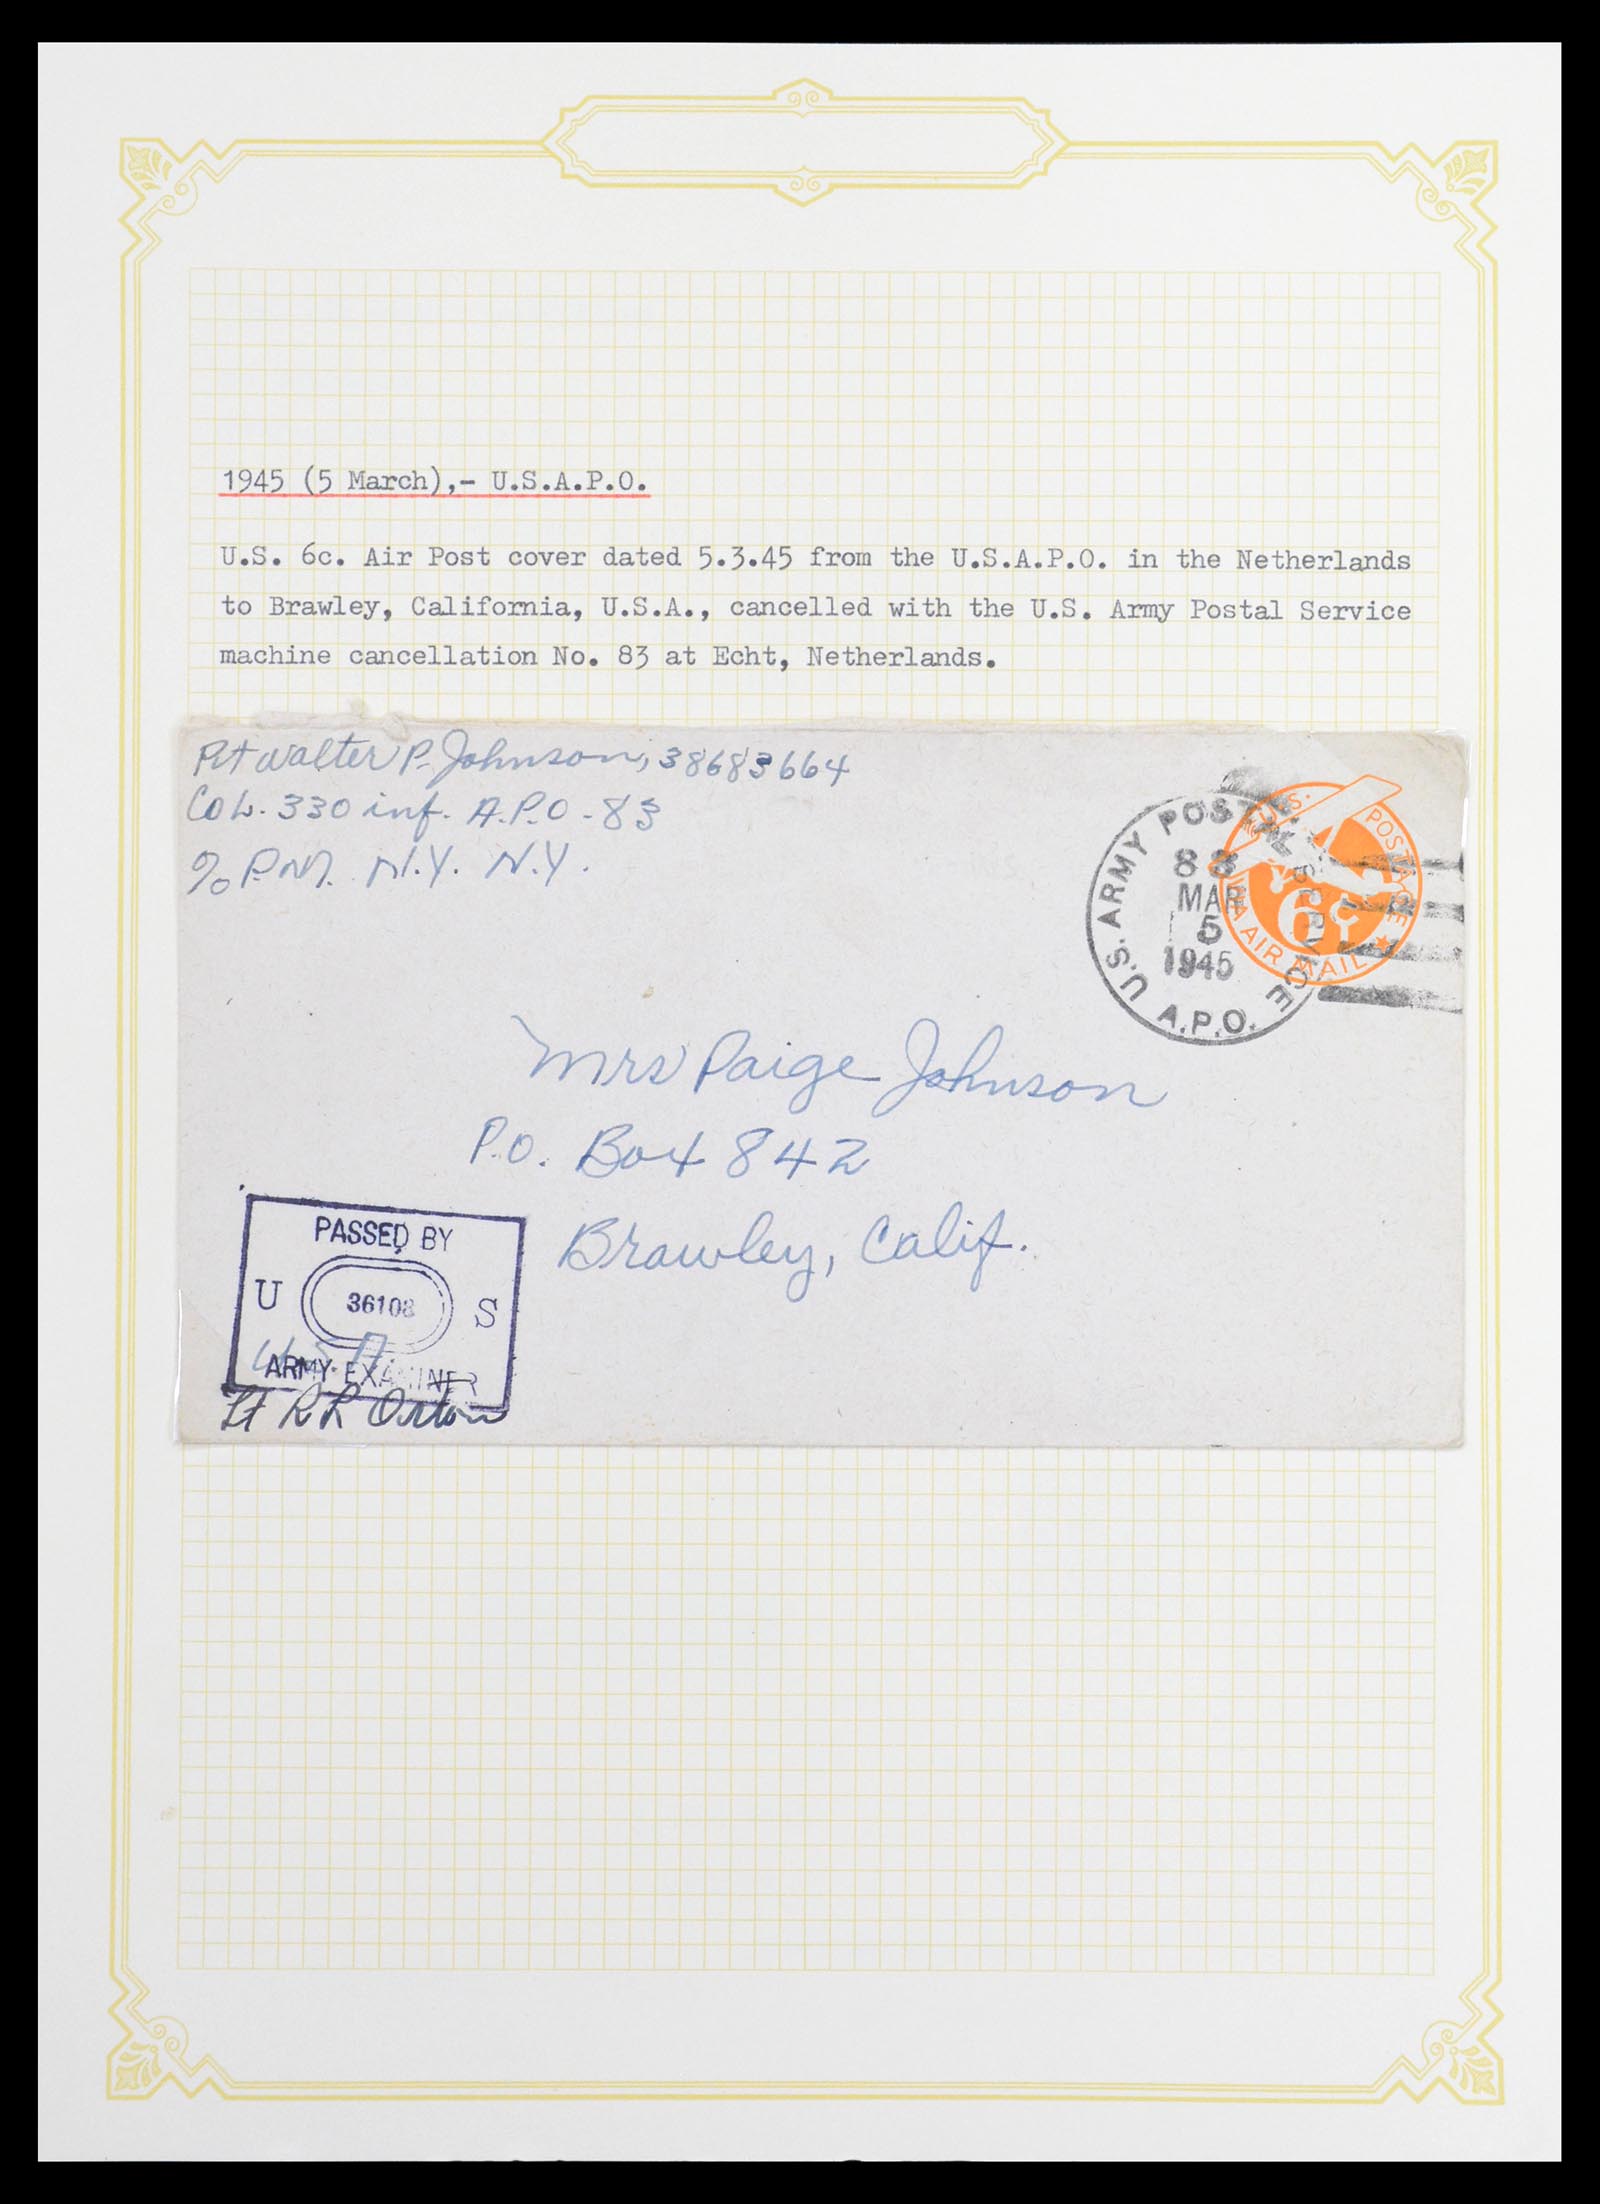 1945 (5 March),- U.S.A.P.O.
U.S. 6c. Air Post cover dated 5.3.45 from the U.S.A.P.O. in the Netherlands
to Brawley, California, U.S.A., cancelled with the U.S. Army Postal Service
machine cancellation No. 83 at Echt, Netherlands.
Pvt Walter P. Johnson, 38683664
Co L. 330 inf. A.P.O - 83
% P.M. N.Y. N.Y.
U.S. ARMY POSTAL SERVICE
A.P.O.
83
MAR
5
1945
U.S. POSTAGE
6¢
VIA AIR MAIL
Mrs Paige Johnson
P.O. Box 842
Brawley, Calif.
PASSED BY
U 36108 S
ARMY EXAMINER
Lt R R Orton